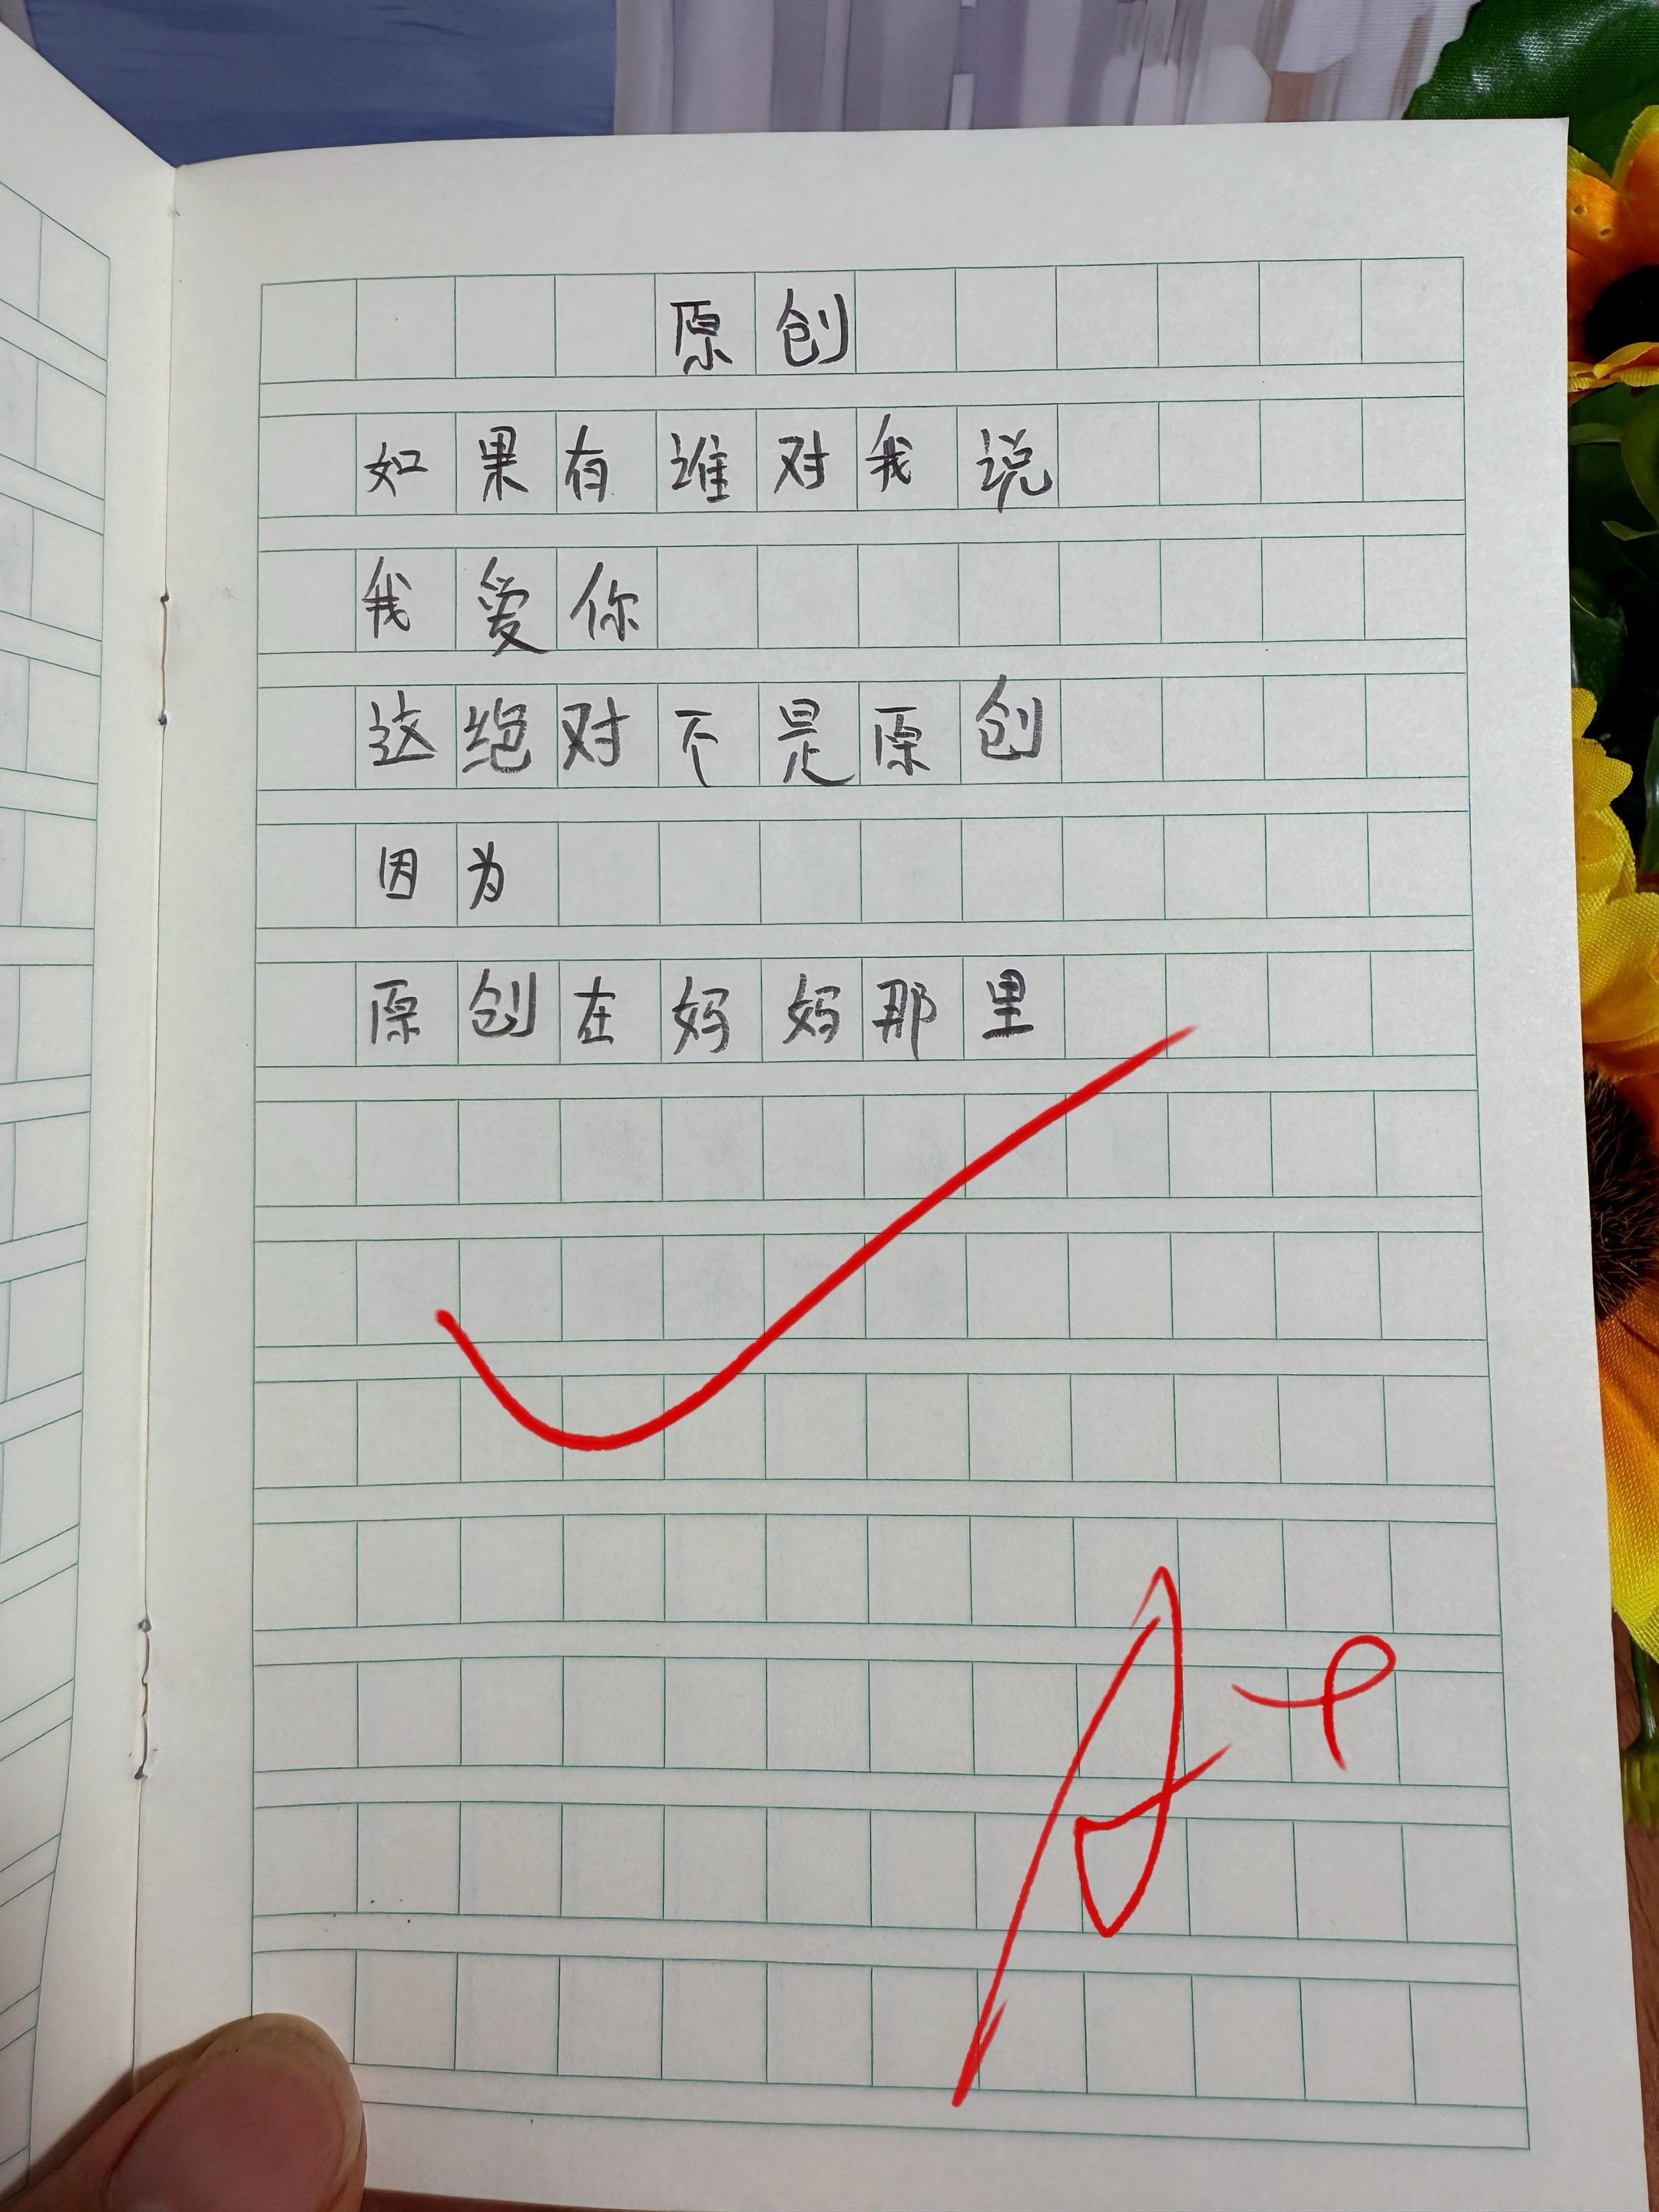 原创
如果有谁对我说
我爱你
这绝对不是原创
因为
原创在妈妈那里
A+